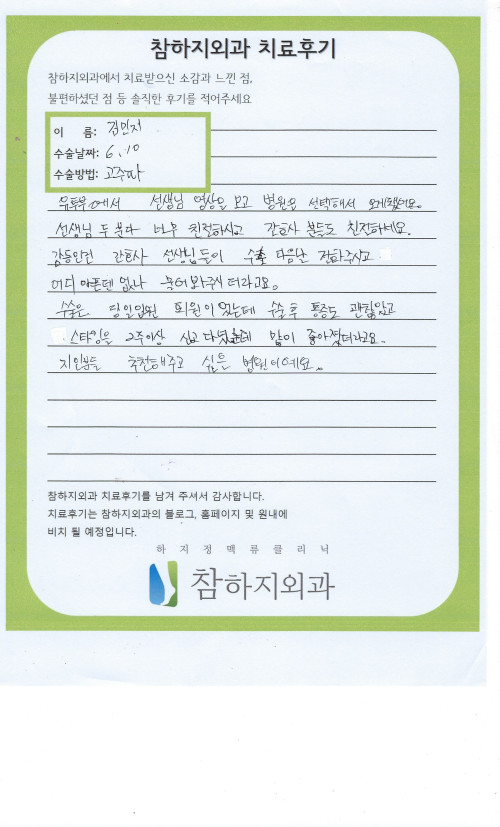 참하지외과 치료후기
참하지외과에서 치료받으신 소감과 느낀 점,
불편하셨던 점 등 솔직한 후기를 적어주세요
이 름: 김민지
수술날짜: 6.10
수술방법: 고주파
유튜브에서 선생님 영상을 보고 병원을 선택해서 오게됐어요.
선생님 두 분다 너무 친절하시고 간호사 분들도 친절하세요.
감동인건 간호사 선생님들이 수술 다음날 전화주시고
어디 아픈덴 없나 물어봐주시더라고요.
수술은 당일입원 퇴원이었는데 수술 후 통증도 괜찮았고
스타킹은 2주이상 신고 다녔는데 많이 좋아졌더라고요.
지인분들 추천해주고 싶은 병원이에요.
참하지외과 치료후기를 남겨 주셔서 감사합니다.
치료후기는 참하지외과의 블로그, 홈페이지 및 원내에
비치 될 예정입니다.
하 지 정 맥 류 클 리 닉
참하지외과